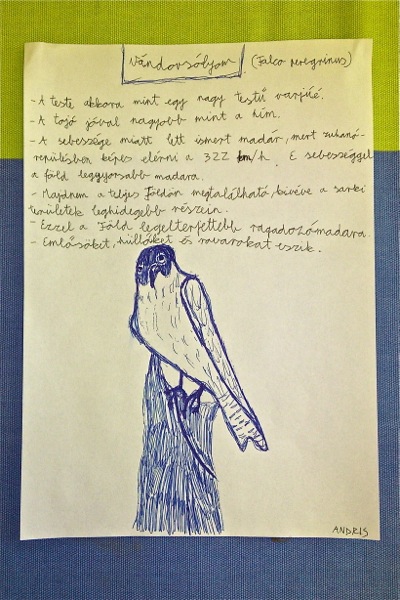 Vándorsólyom (Falco peregrinus)
- A teste akkora mint egy nagy testű varjúé.
- A tojó jóval nagyobb mint a hím.
- A sebessége miatt lett ismert madár, mert zuhanó-
repülésben képes elérni a 322 km/h. E sebességgel
a föld leggyorsabb madara.
- Majdnem a teljes Földön megtalálható, kivéve a sarki
területek leghidegebb részein.
- Ezzel a Föld legelterjettebb ragadozómadara
- Emlősöket, hüllőket és rovarokat eszik.
ANDRIS